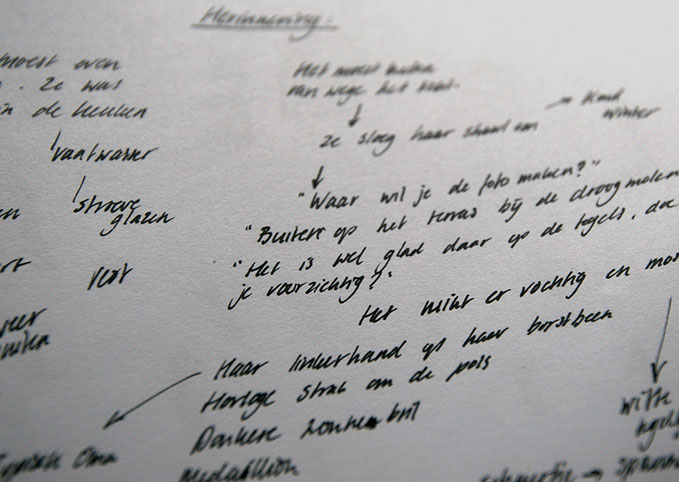 Herinnering:
moest even
. Ze was
in de keuken
vaatwasser
stroeve
glazen
vest
Het moest buiten
van wege het
ze sloeg haar shawl om
koud
winter
"Waar wil je de foto maken?"
"Buiten op het terras bij de droogmolen
"Het is wel glad daar op de tegels, doe
je voorzichtig?"
Het ruikt er vochtig en
Haar linkerhand op haar borstbeen
Horloge strak om de pols
Donkere zonnebril
Medaillon
Oma
witte